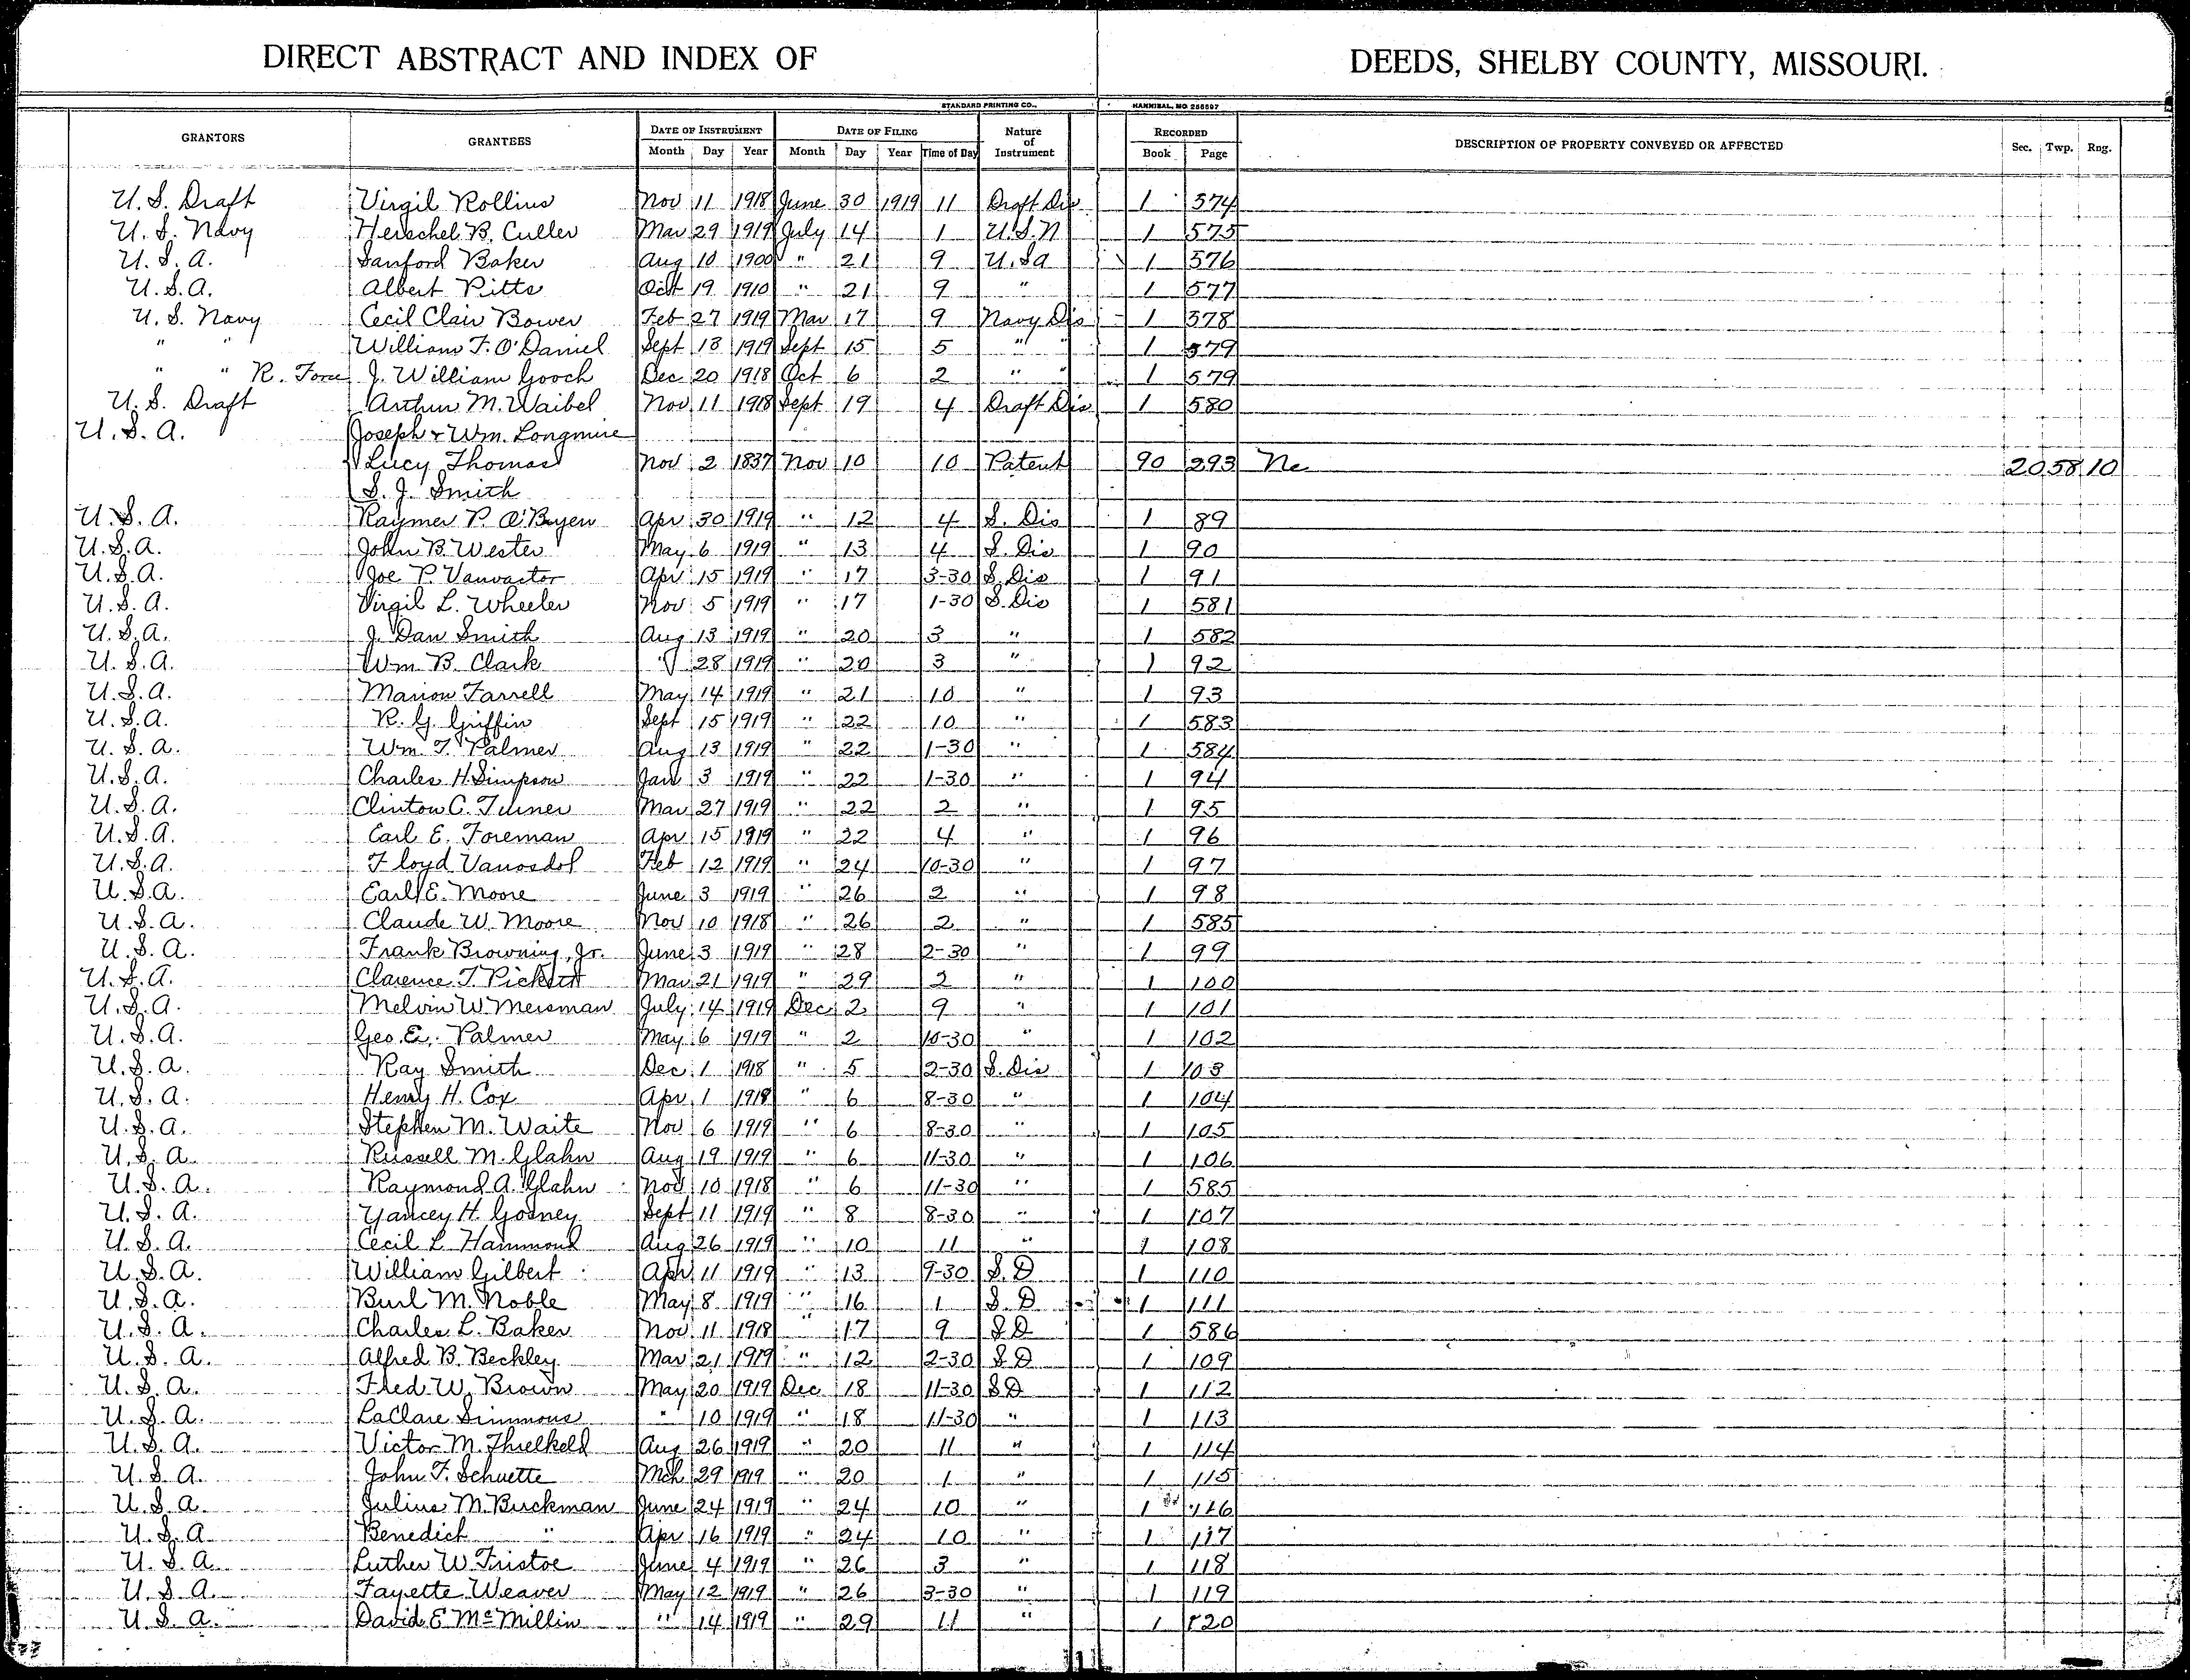 DIRECT ABSTRACT AND INDEX OF DEEDS, SHELBY COUNTY, MISSOURI.
STANDARD PRINTING CO., HANNIBAL, MO. 256597
GRANTORS GRANTEES DATE OF INSTRUMENT DATE OF FILING Nature of Instrument RECORDED DESCRIPTION OF PROPERTY CONVEYED OR AFFECTED Sec. Twp. Rng.
Month Day Year Month Day Year Time of Day Book Page
U.S. Draft Virgil Rollins Nov 11 1918 June 30 1919 11 Draft Dis 1 574
U.S. Navy Herschel B. Culler Mar 29 1919 July 14 1 U.S.N 1 575
U.S.A. Sanford Baker Aug 10 1900 " 21 9 U.Sa 1 576
U.S.A. Albert Pitts Oct 19 1910 " 21 9 " 1 577
U.S. Navy Cecil Clair Bower Feb 27 1919 Mar 17 9 Navy Dis 1 378
" " William T. O'Daniel Sept 13 1919 Sept 15 5 " " 1 579
" " R. Force J. William Gooch Dec 20 1918 Oct 6 2 " " 1 579
U.S. Draft Arthur M. Waibel Nov 11 1918 Sept 19 4 Draft Dis 1 580
U.S.A. Joseph & Wm. Longmire
Lucy Thomas Nov 2 1837 Nov 10 10 Patent 90 293 Ne 20 58 10
S. J. Smith
U.S.A. Raymer P. O'Bryen Apr 30 1919 " 12 4 S. Dis 1 89
U.S.A. John B. Wester May 6 1919 " 13 4 S. Dis 1 90
U.S.A. Joe P. Vanvactor Apr 15 1919 " 17 3-30 S. Dis 1 91
U.S.A. Virgil L. Wheeler Nov 5 1919 " 17 1-30 S. Dis 1 581
U.S.A. J. Dan Smith Aug 13 1919 " 20 3 " 1 582
U.S.A. Wm. B. Clark 28 1919 " 20 3 " 1 92
U.S.A. Marion Farrell May 14 1919 " 21 10 " 1 93
U.S.A. R. G. Griffin Sept 15 1919 " 22 10 " 1 583
U.S.A. Wm. T. Palmer Aug 13 1919 " 22 1-30 " 1 584
U.S.A. Charles H. Simpson Jan 3 1919 " 22 1-30 " 1 94
U.S.A. Clinton C. Turner Mar 27 1919 " 22 2 " 1 95
U.S.A. Earl E. Foreman Apr 15 1919 " 22 4 " 1 96
U.S.A. Floyd Vanosdol Feb 12 1919 " 24 10-30 " 1 97
U.S.A. Earl E. Moore June 3 1919 " 26 2 " 1 98
U.S.A. Claude W. Moore Nov 10 1918 " 26 2 " 1 585
U.S.A. Frank Browning, Jr. June 3 1919 " 28 2-30 " 1 99
U.S.A. Clarence T. Pickett Mar 21 1919 " 29 2 " 1 100
U.S.A. Melvin W. Meisman July 14 1919 Dec 2 9 " 1 101
U.S.A. Geo. E. Palmer May 6 1919 " 2 10-30 " 1 102
U.S.A. Ray Smith Dec 1 1918 " 5 2-30 S. Dis 1 103
U.S.A. Henry H. Cox Apr 1 1918 " 6 8-30 " 1 104
U.S.A. Stephen M. Waite Nov 6 1919 " 6 8-30 " 1 105
U.S.A. Russell M. Glahn Aug 19 1919 " 6 11-30 " 1 106
U.S.A. Raymond A. Glahn Nov 10 1918 " 6 11-30 " 1 585
U.S.A. Yancey H. Gosney Sept 11 1919 " 8 8-30 " 1 107
U.S.A. Cecil L. Hammond Aug 26 1919 " 10 11 " 1 108
U.S.A. William Gilbert Apr 11 1919 " 13 9-30 S. D 1 110
U.S.A. Burl M. Noble May 8 1919 " 16 1 S. D 1 111
U.S.A. Charles L. Baker Nov 11 1918 " 17 9 S D 1 586
U.S.A. Alfred B. Beckley Mar 21 1919 " 12 2-30 S D 1 109
U.S.A. Fred W. Brown May 20 1919 Dec 18 11-30 S D 1 112
U.S.A. LaClare Simmons " 10 1919 " 18 11-30 " 1 113
U.S.A. Victor M. Threlkeld Aug 26 1919 " 20 11 " 1 114
U.S.A. John F. Schuette Mch 29 1919 " 20 1 " 1 115
U.S.A. Julius M. Buckman June 24 1919 " 24 10 " 1 116
U.S.A Benedict " Apr 16 1919 " 24 10 " 1 117
U.S.A Luther W. Fristoe June 4 1919 " 26 3 " 1 118
U.S.A. Fayette Weaver May 12 1919 " 26 3-30 " 1 119
U.S.A. David E McMillin " 14 1919 " 29 11 " 1 120